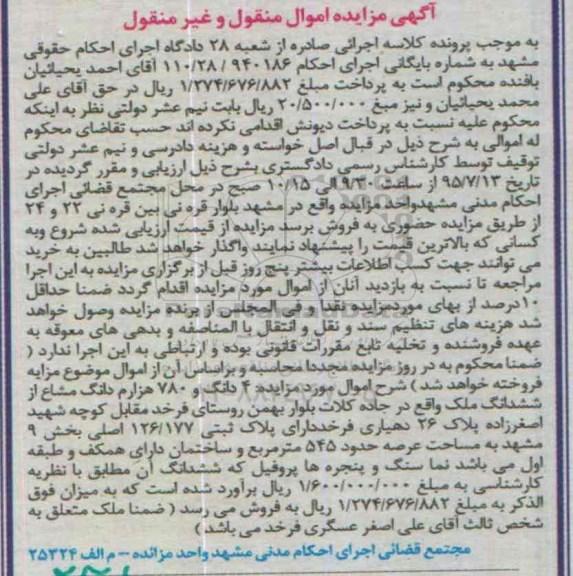 آگهی مزایده اموال منقول و غیر منقول
به موجب پرونده کلاسه اجرائی صادره از شعبه ۲۸ دادگاه اجرای احکام حقوقی
مشهد به شماره بایگانی اجرای احکام ۹۴۰۱۸۶ / ۱۱۰/۲۸ آقای احمد یحیائیان
بافنده محکوم است به پرداخت مبلغ ۱/۲۷۴/۶۷۶/۸۸۲ ریال در حق آقای علی
محمد یحیائیان و نیز مبغ ۲۰/۵۰۰/۰۰۰ ریال بابت نیم عشر دولتی نظر به اینکه
محکوم علیه نسبت به پرداخت دیونش اقدامی نکرده اند حسب تقاضای محکوم
له اموالی به شرح ذیل در قبال اصل خواسته و هزینه دادرسی و نیم عشر دولتی
توقیف توسط کارشناس رسمی دادگستری بشرح ذیل ارزیابی و مقرر گردیده در
تاریخ ۹۵/۷/۱۳ از ساعت ۹/۳۰ الی ۱۰/۱۵ صبح در محل مجتمع قضائی اجرای
احکام مدنی مشهدواحد مزایده واقع در مشهد بلوار قره نی بین قره نی ۲۲ و ۲۴
از طریق مزایده حضوری به فروش برسد مزایده از قیمت ارزیابی شده شروع وبه
کسانی که بالاترین قیمت را پیشنهاد نمایند واگذار خواهد شد طالبین به خرید
می توانند جهت کسب اطلاعات بیشتر پنج روز قبل از برگزاری مزایده به این اجرا
مراجعه تا نسبت به بازدید آنان از اموال مورد مزایده اقدام گردد ضمنا حداقل
۱۰درصد از بهای موردمزایده نقدا و فی المجلس از برنده مزایده وصول خواهد
شد هزینه های تنظیم سند و نقل و انتقال با المناصفه و بدهی های معوقه به
عهده فروشنده و تخلیه تابع مقررات قانونی بوده و ارتباطی به این اجرا ندارد (
ضمنا محکوم به در روز مزایده مجددا محاسبه و براساس آن از اموال موضوع مزایه
فروخته خواهد شد ) شرح اموال مورد مزایده: ۴ دانگ و ۷۸۰ هزارم دانگ مشاع از
ششدانگ ملک واقع در جاده کلات بلوار بهمن روستای فرخد مقابل کوچه شهید
اصغرزاده پلاک ۲۶ دهیاری فرخددارای پلاک ثبتی ۱۲۶/۱۷۷ اصلی بخش ۹
مشهد به مساحت عرصه حدود ۵۴۵ مترمربع و ساختمان دارای همکف و طبقه
اول می باشد نما سنگ و پنجره ها پروفیل که ششدانگ آن مطابق با نظریه
کارشناسی به مبلغ ۱/۶۰۰/۰۰۰/۰۰۰ ریال برآورد شده است که به میزان فوق
الذکر به مبلغ ۱/۲۷۴/۶۷۶/۸۸۲ ریال به فروش می رسد ( ضمنا ملک متعلق به
شخص ثالث آقای علی اصغر عسگری فرخد می باشد )
مجتمع قضائی اجرای احکام مدنی مشهد واحد مزائده - م الف ۲۵۳۲۴